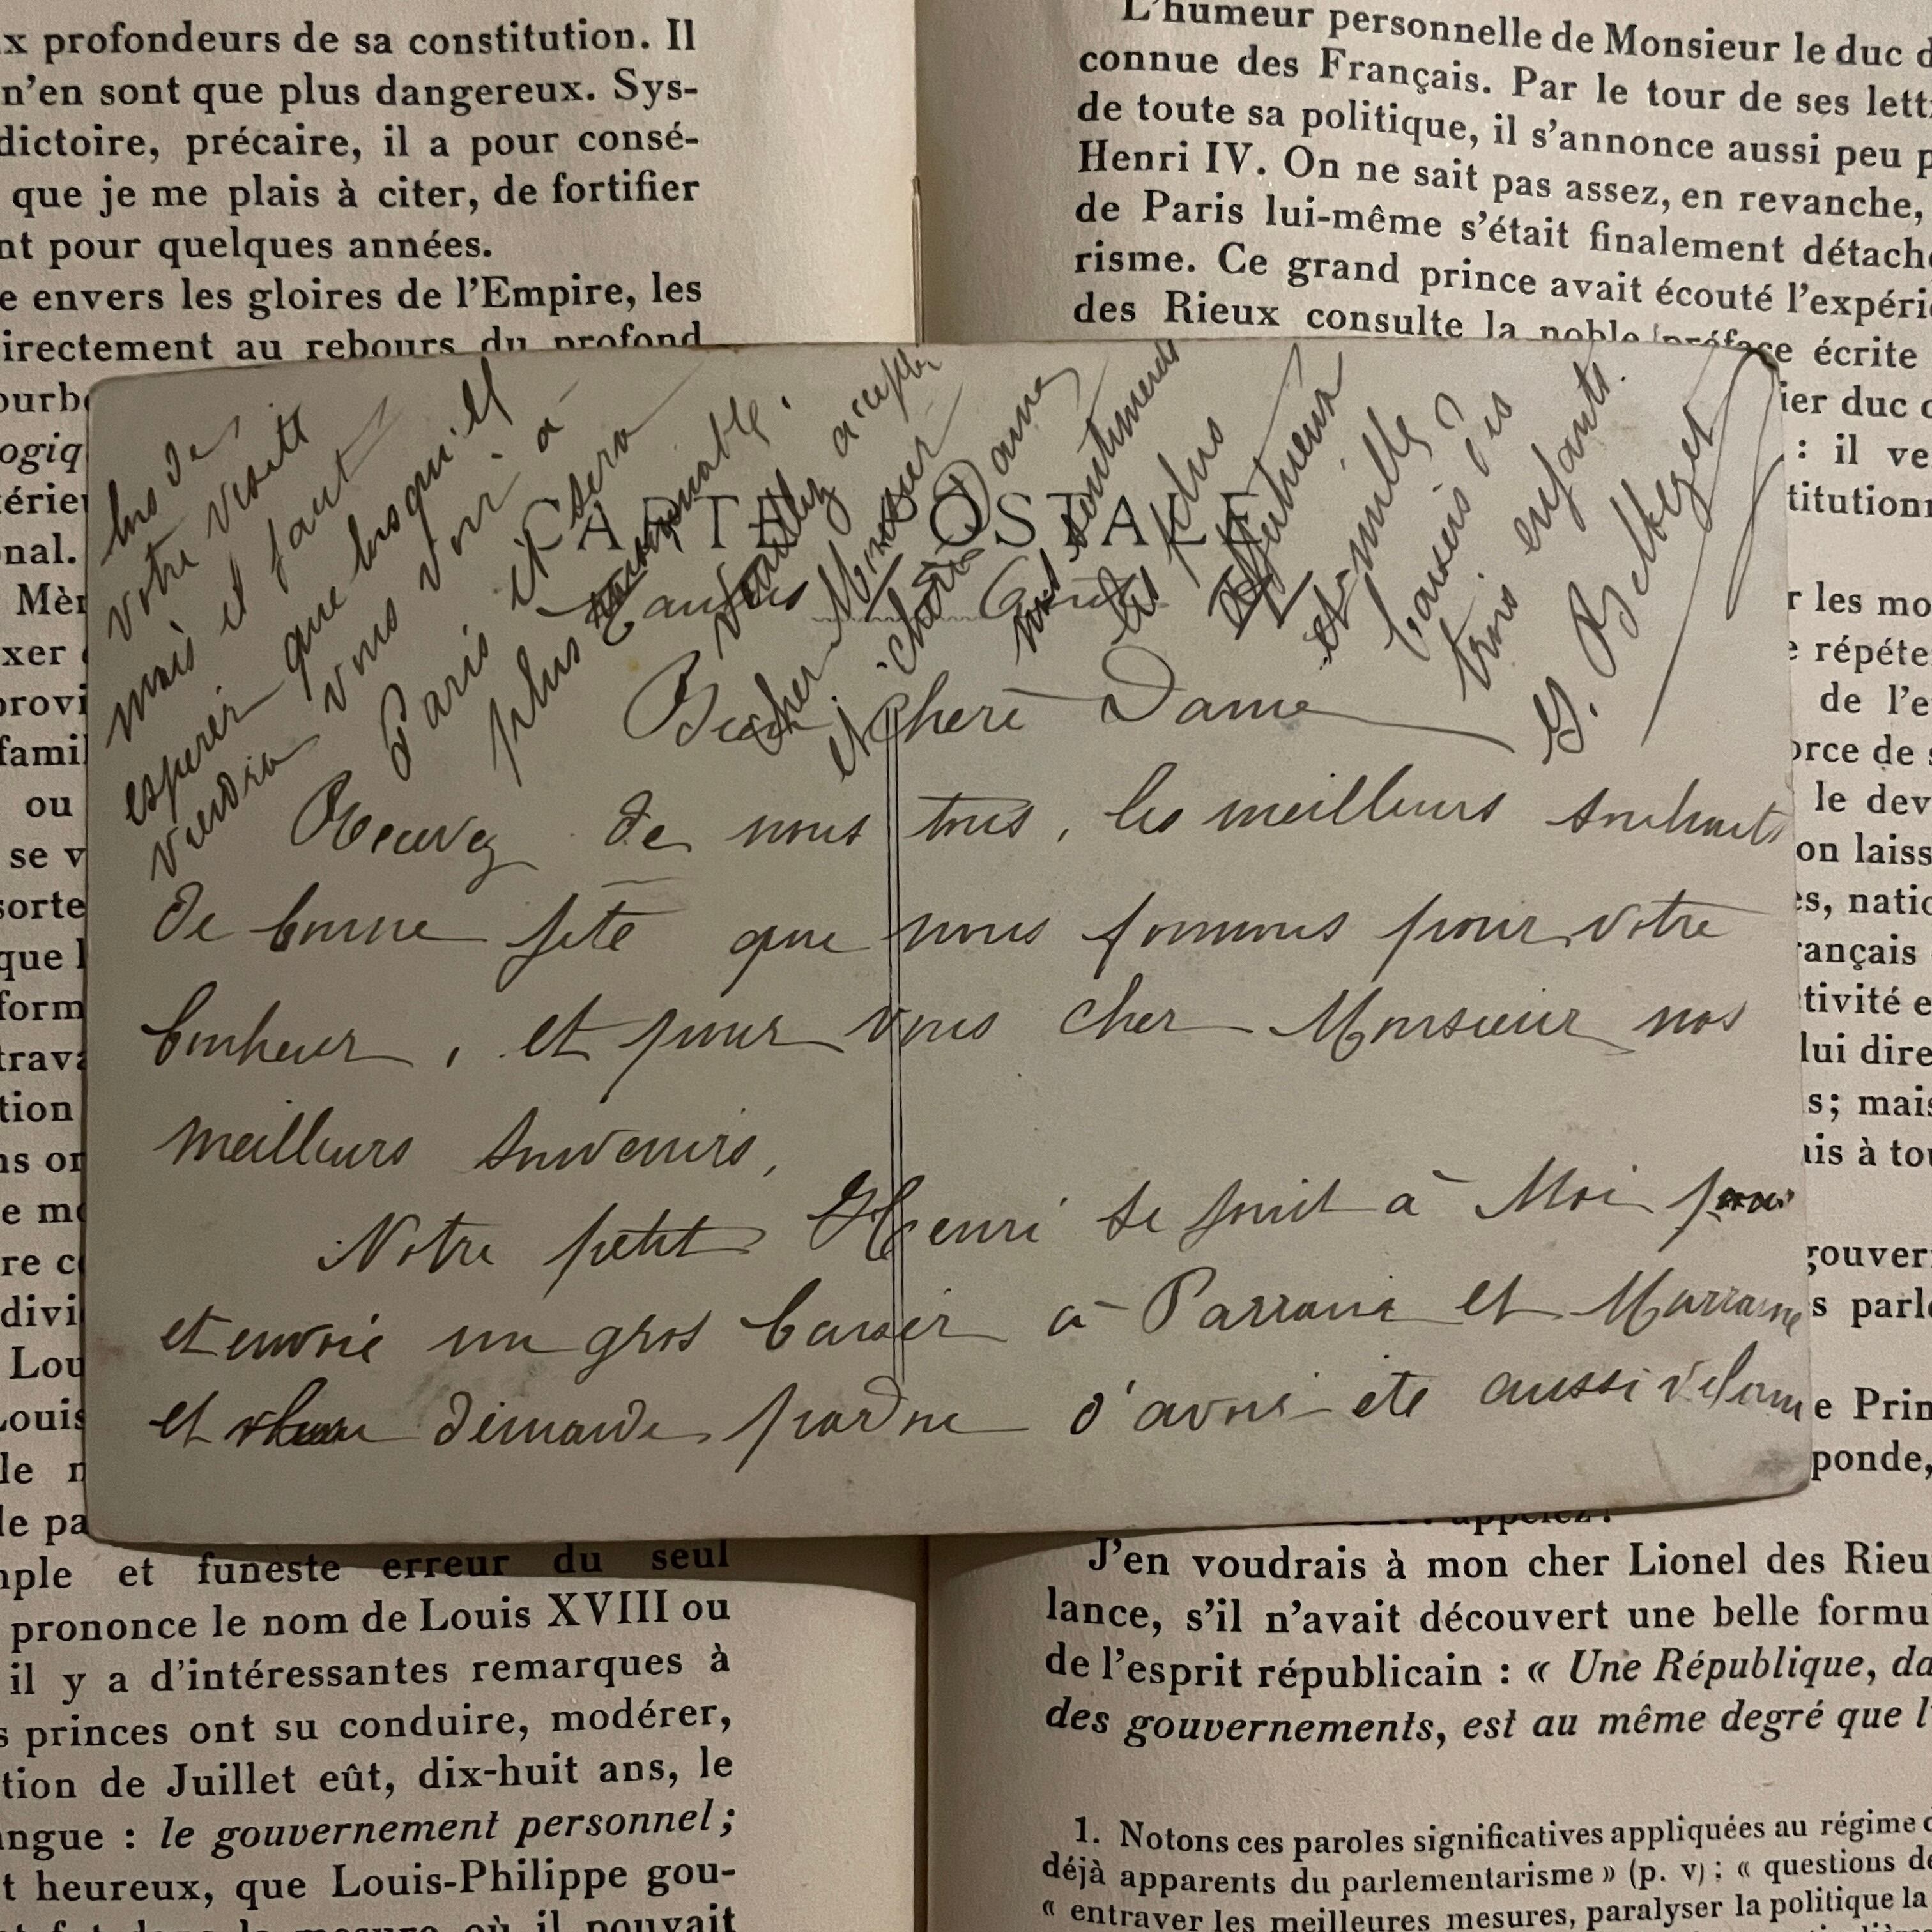 x profondeurs de sa constitution. Il
n'en sont que plus dangereux. Sys-
dictoire, précaire, il a pour consé-
que je me plais à citer, de fortifier
nt pour quelques années.
e envers les gloires de l'Empire, les
irectement au rebours du profond
ourb
ogiq
térieu
onal.
Mèr
xer
provi
famil
ou
se v
sorte
que l
form
trava
tion
ns on
e mo
re c
divi
Lou
Louis
le n
le pa
mple et funeste erreur du seul
prononce le nom de Louis XVIII ou
il y a d'intéressantes remarques à
s princes ont su conduire, modérer,
tion de Juillet eût, dix-huit ans, le
angue : le gouvernement personnel;
t heureux, que Louis-Philippe gou-
mesure où il pouvait
L'humeur personnelle de Monsieur le duc d
connue des Français. Par le tour de ses lett
de toute sa politique, il s'annonce aussi peu p
Henri IV. On ne sait pas assez, en revanche,
de Paris lui-même s'était finalement détach
risme. Ce grand prince avait écouté l'expéri
des Rieux consulte la noble préface écrite
ier duc d
: il ve
titutionn
r les mo
e répéte
de l'e
orce de s
le dev
on laiss
es, natio
rançais
tivité e
lui dire
s; mais
ais à tou
gouver
s parl
e Prin
ponde,
appelez !
J'en voudrais à mon cher Lionel des Rieu
lance, s'il n'avait découvert une belle formu
de l'esprit républicain : « Une République, da
des gouvernements, est au même degré que l'
1. Notons ces paroles significatives appliquées au régime d
déjà apparents du parlementarisme » (p. v) : « questions de
« entraver les meilleures mesures, paralyser la politique la
CARTE POSTALE
Bien chere Dame
Recevez de nous tous, les meilleurs souhaits
de bonne fête que nous formons pour votre
bonheur, et pour vous cher Monsieur nos
meilleurs souvenirs,
Notre petit Henri se joint à Moi pour
et envoie un gros baiser à Parrain et Marraine
et demande pardon d'avoir été aussi vilain
lors de
votre visite
mais il faut
esperer que lorsqu'il
viendra vous voir à
Paris il sera
plus raisonnable.
Veuillez accepter
cher Monsieur
et chère Dame
nos sentiments
les plus
affectueux
et mille
baisers des
trois enfants.
G. Belbezet